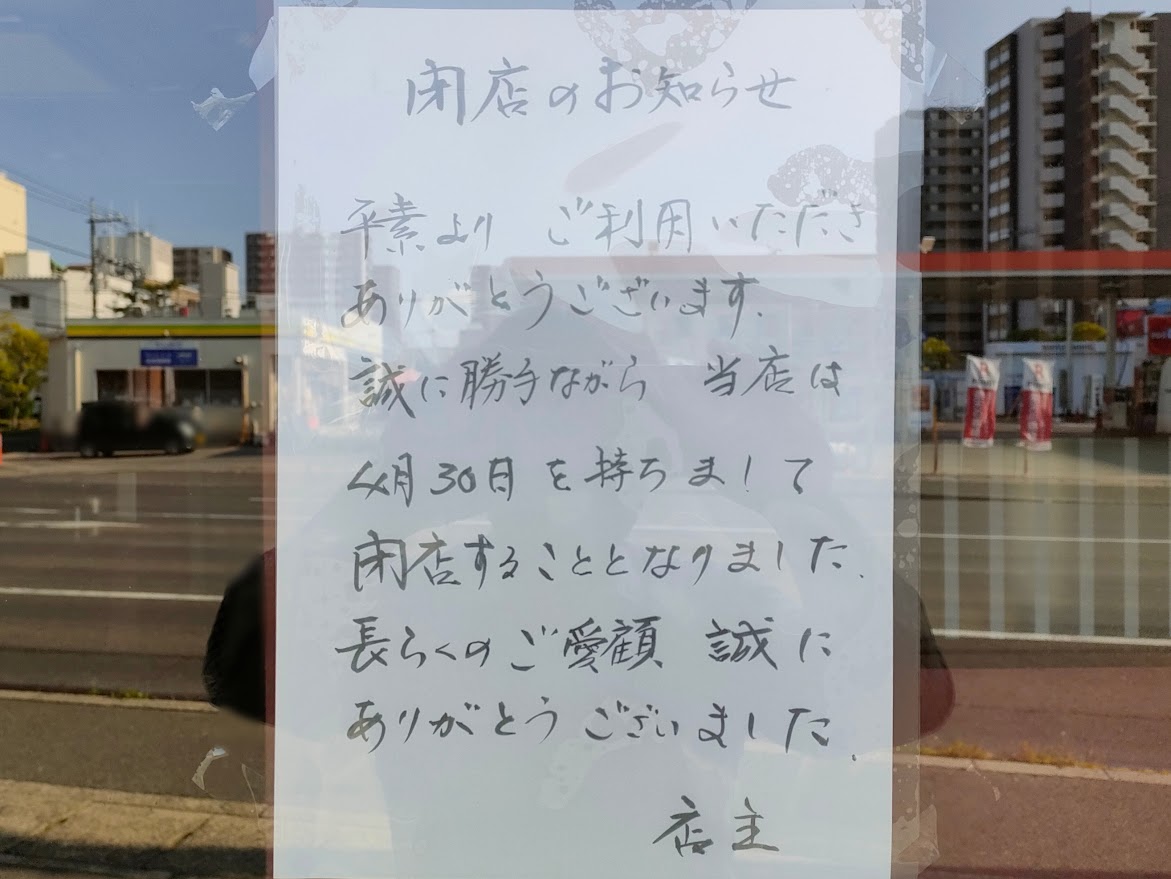 閉店のお知らせ
平素より ご利用いただき
ありがとうございます.
誠に勝手ながら 当店は
4月30日を持ちまして
閉店することとなりました.
長らくのご愛顧 誠に
ありがとうございました.
店主